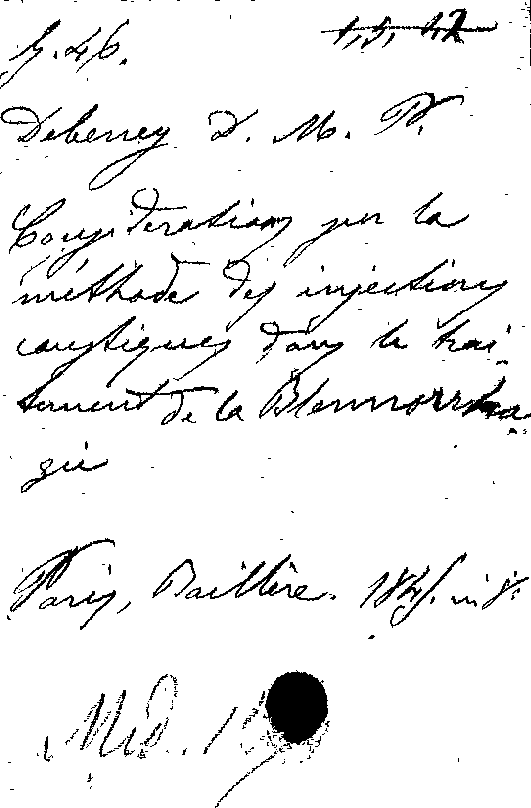 1, 5, 12
Debeney D. M. P.
Considerations sur la
méthode des injections
caustiques dans le trai-
tement de la Blennorrha
gie
Paris, Baillière. 184 in 8.
Med.